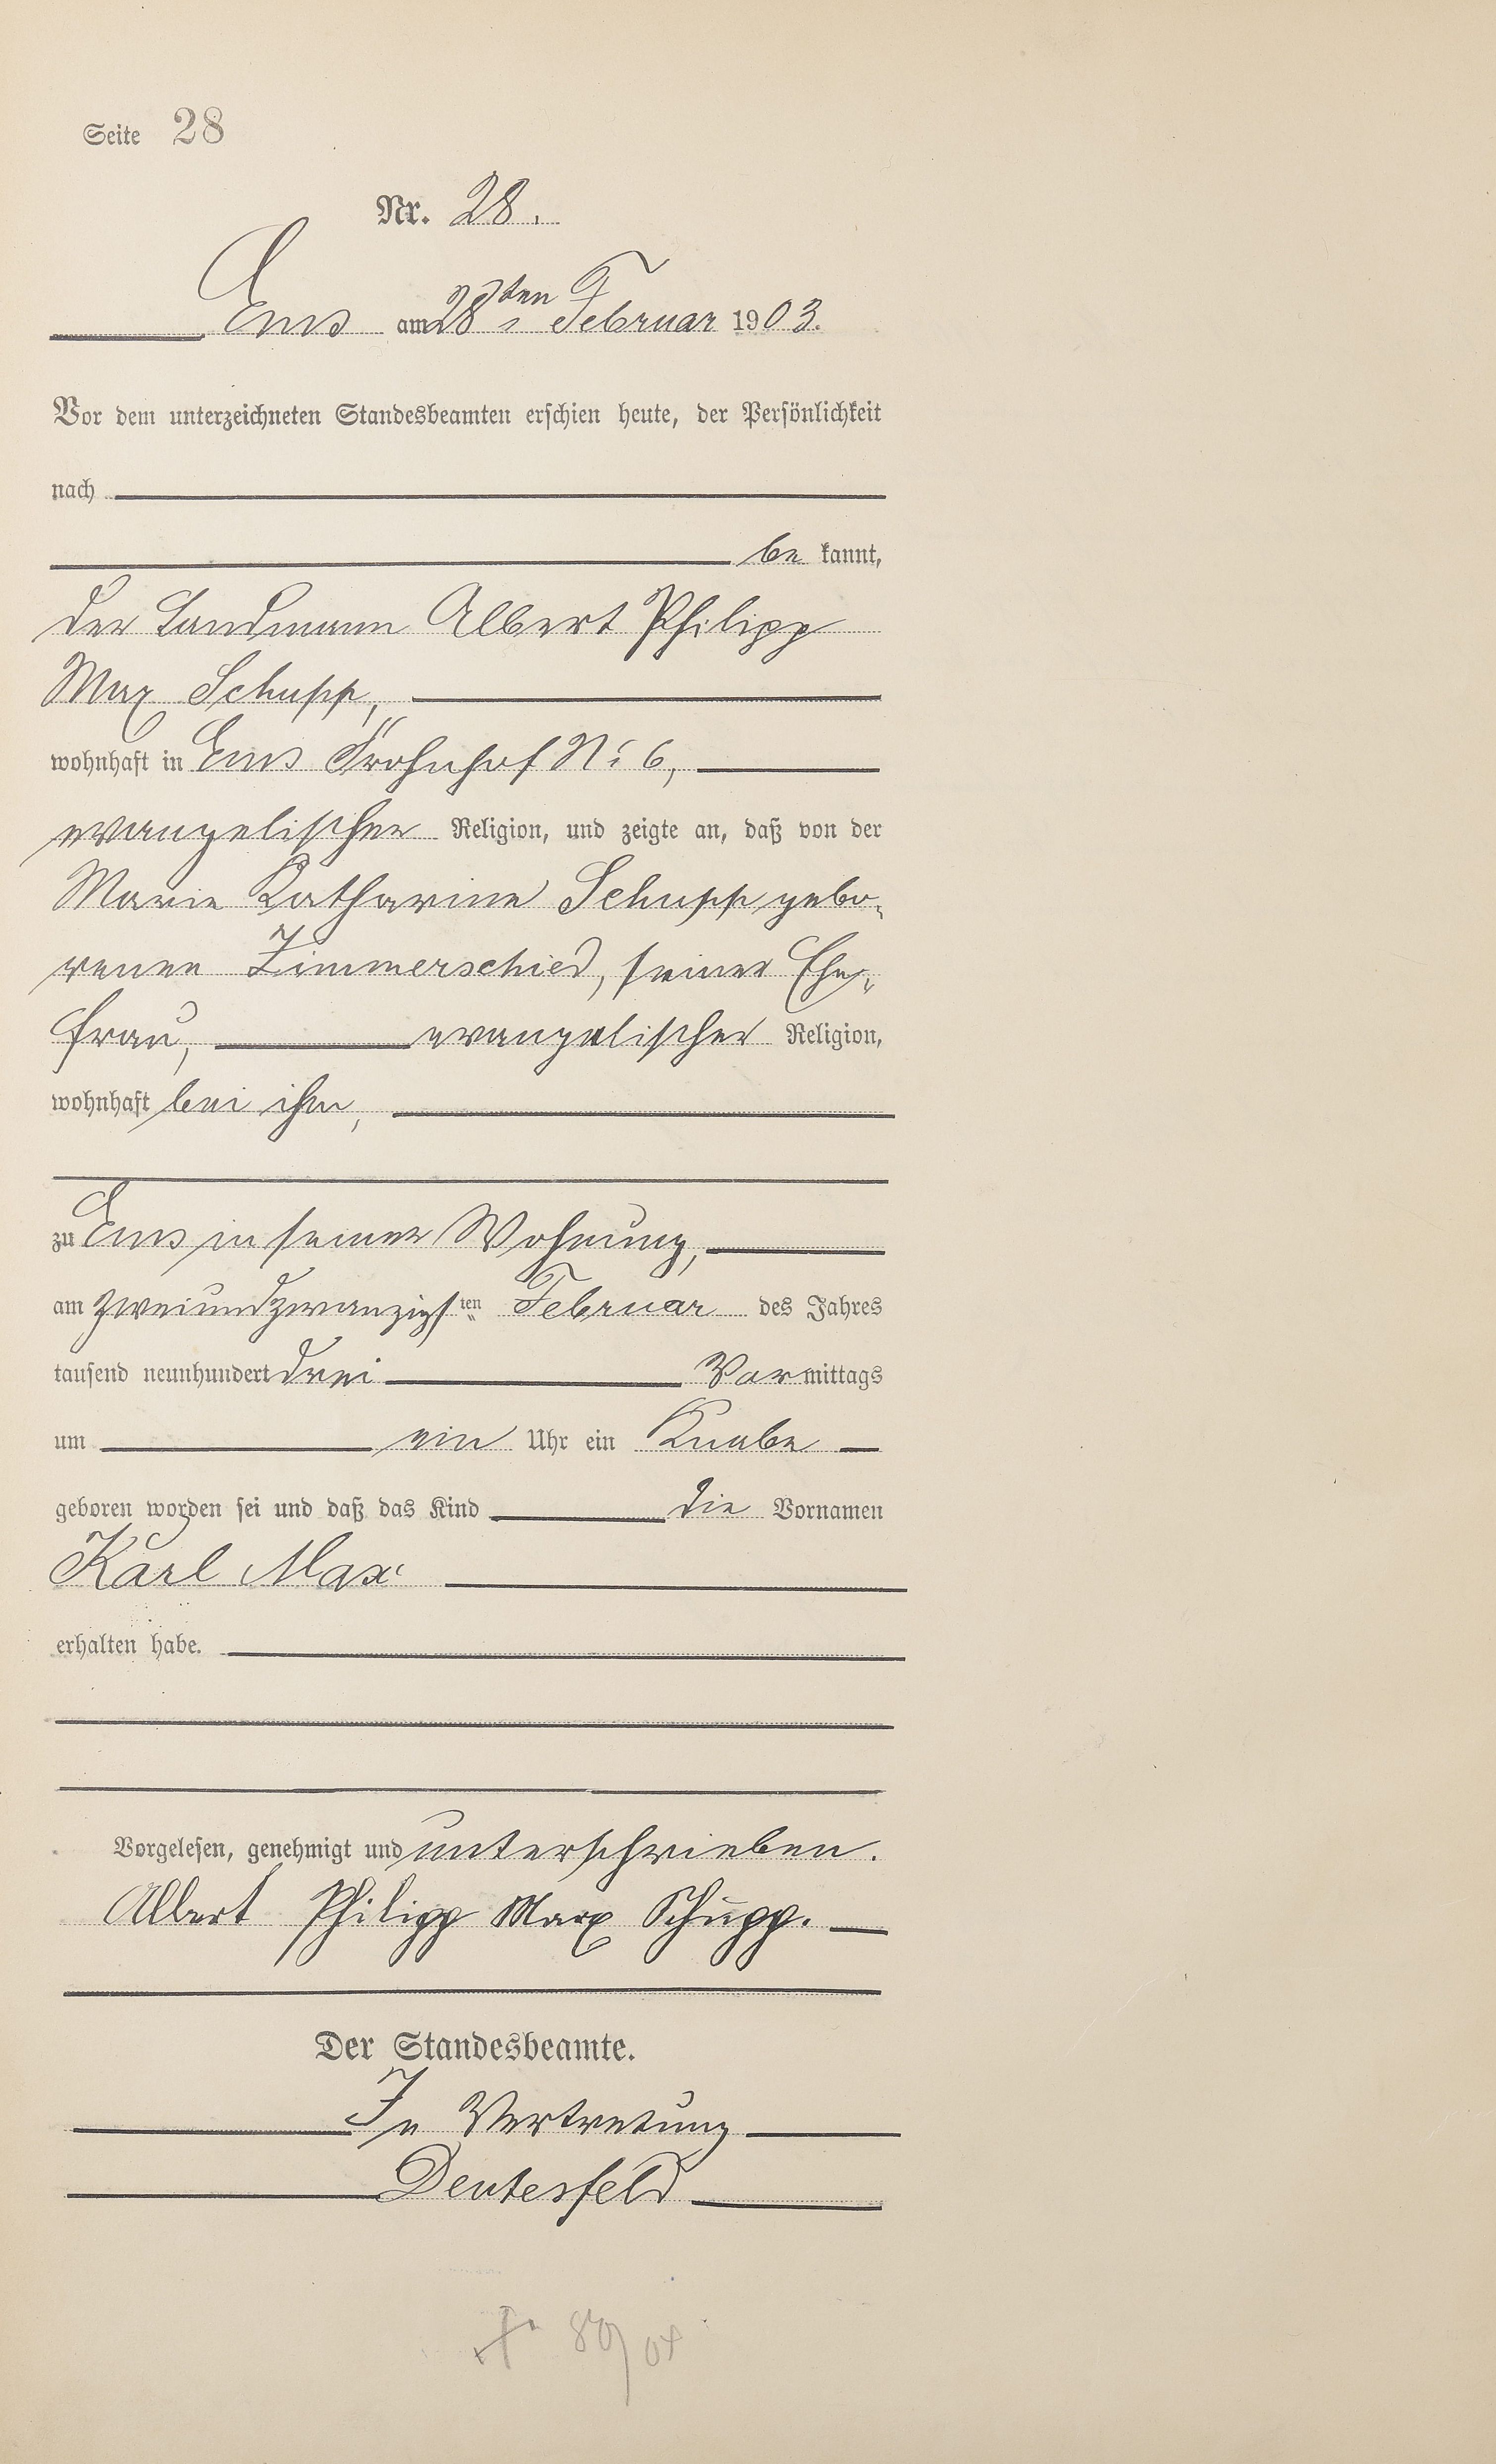 Seite 28
Nr. 28.
Ems am 28ten Februar 1903.
Vor dem unterzeichneten Standesbeamten erschien heute, der Persönlichkeit
nach
be kannt,
der Landmann Albert Philipp
Max Schupp,
wohnhaft in Ems Frohnhof No 6,
evangelischer Religion, und zeigte an, daß von der
Marie Katharine Schupp gebo-
renen Zimmerschied, seiner Ehe-
frau, evangelischer Religion,
wohnhaft bei ihm,
zu Ems in seiner Wohnung,
am zweiundzwanzigsten Februar des Jahres
tausend neunhundert drei Vormittags
um ein Uhr ein Knabe
geboren worden sei und daß das Kind die Vornamen
Karl Max
erhalten habe.
Vorgelesen, genehmigt und unterschrieben.
Albert Philipp Max Schupp.
Der Standesbeamte.
In Vertretung
Deutesfeld
80/04